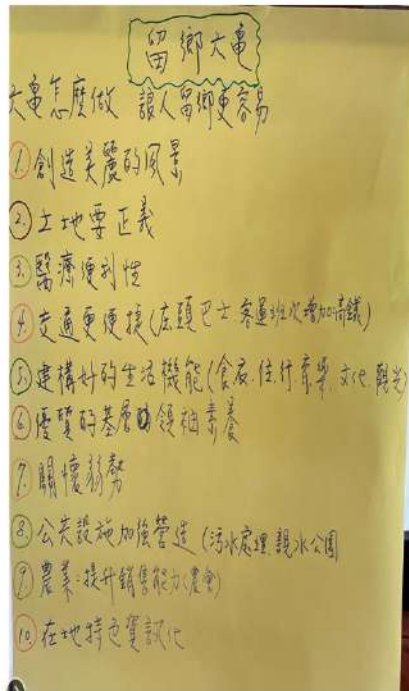 留鄉六龜
六龜怎麼做 讓人留鄉更容易
1. 創造美麗的風景
2. 土地要正義
3. 醫療便利性
4. 交通更便捷(庄頭巴士.客運班次增加.高鐵)
5. 建構好的生活機能(食衣.住.行.育樂.文化.觀光)
6. 優質的基層的領袖素養
7. 關懷弱勢
8. 公共設施加強營造(污水處理.親水公園
9. 農業:提升銷售能力(農會)
10. 在地特色資訊化